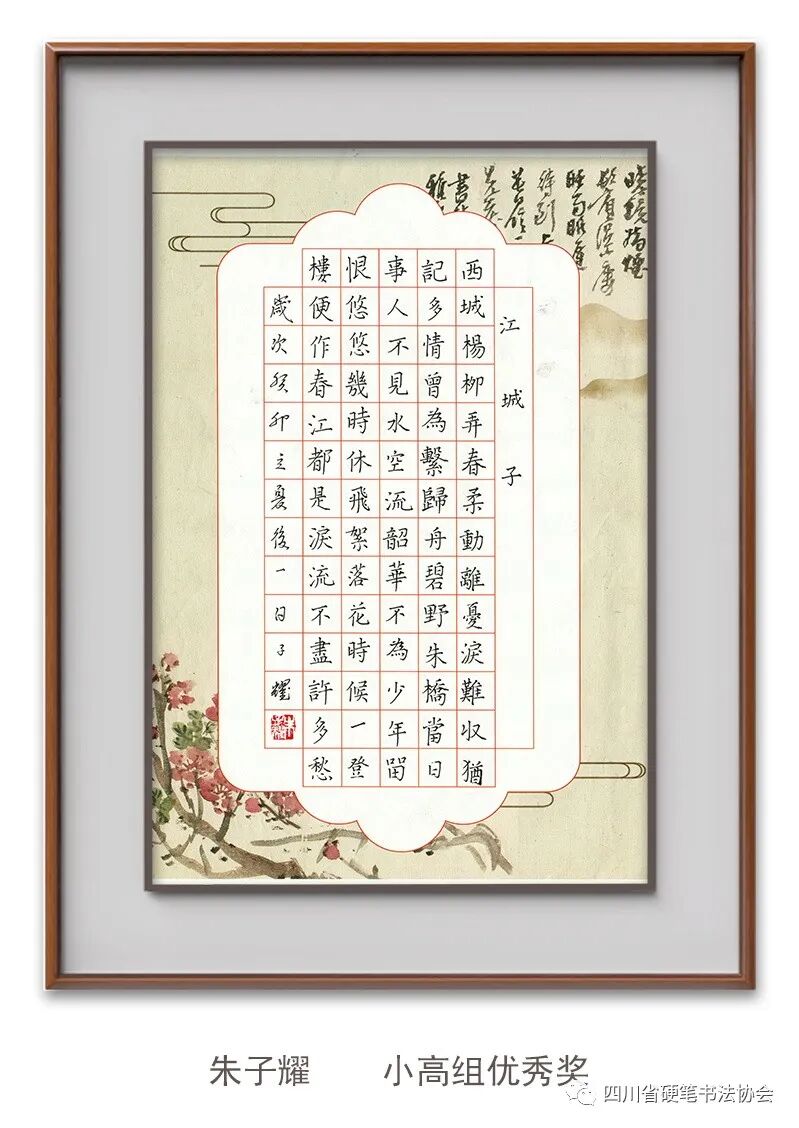 江城子
西城楊柳弄春柔動離憂淚難収猶
記多情曾為繫歸舟碧野朱橋當日
事人不見水空流韶華不為少年留
恨悠悠幾時休飛絮落花時候一登
樓便作春江都是淚流不盡許多愁
歲次癸卯立夏後一日子耀
朱子耀 小高组优秀奖
四川省硬笔书法协会